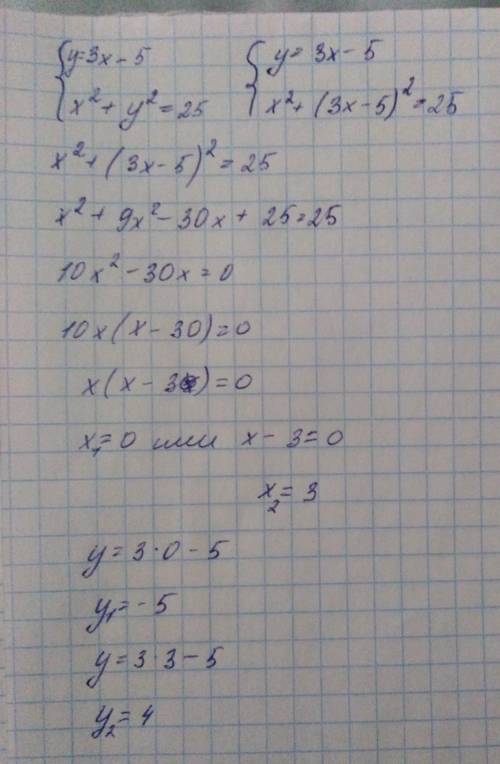 {y=3x-5 {y=3x-5
{x²+y²=25 {x²+(3x-5)²=25
x²+(3x-5)²=25
x²+9x²-30x+25=25
10x²-30x=0
10x(x-30)=0
x(x-3)=0
x₁=0 или x-3=0
x₂=3
y=3·0-5
y₁=-5
y=3·3-5
y₂=4